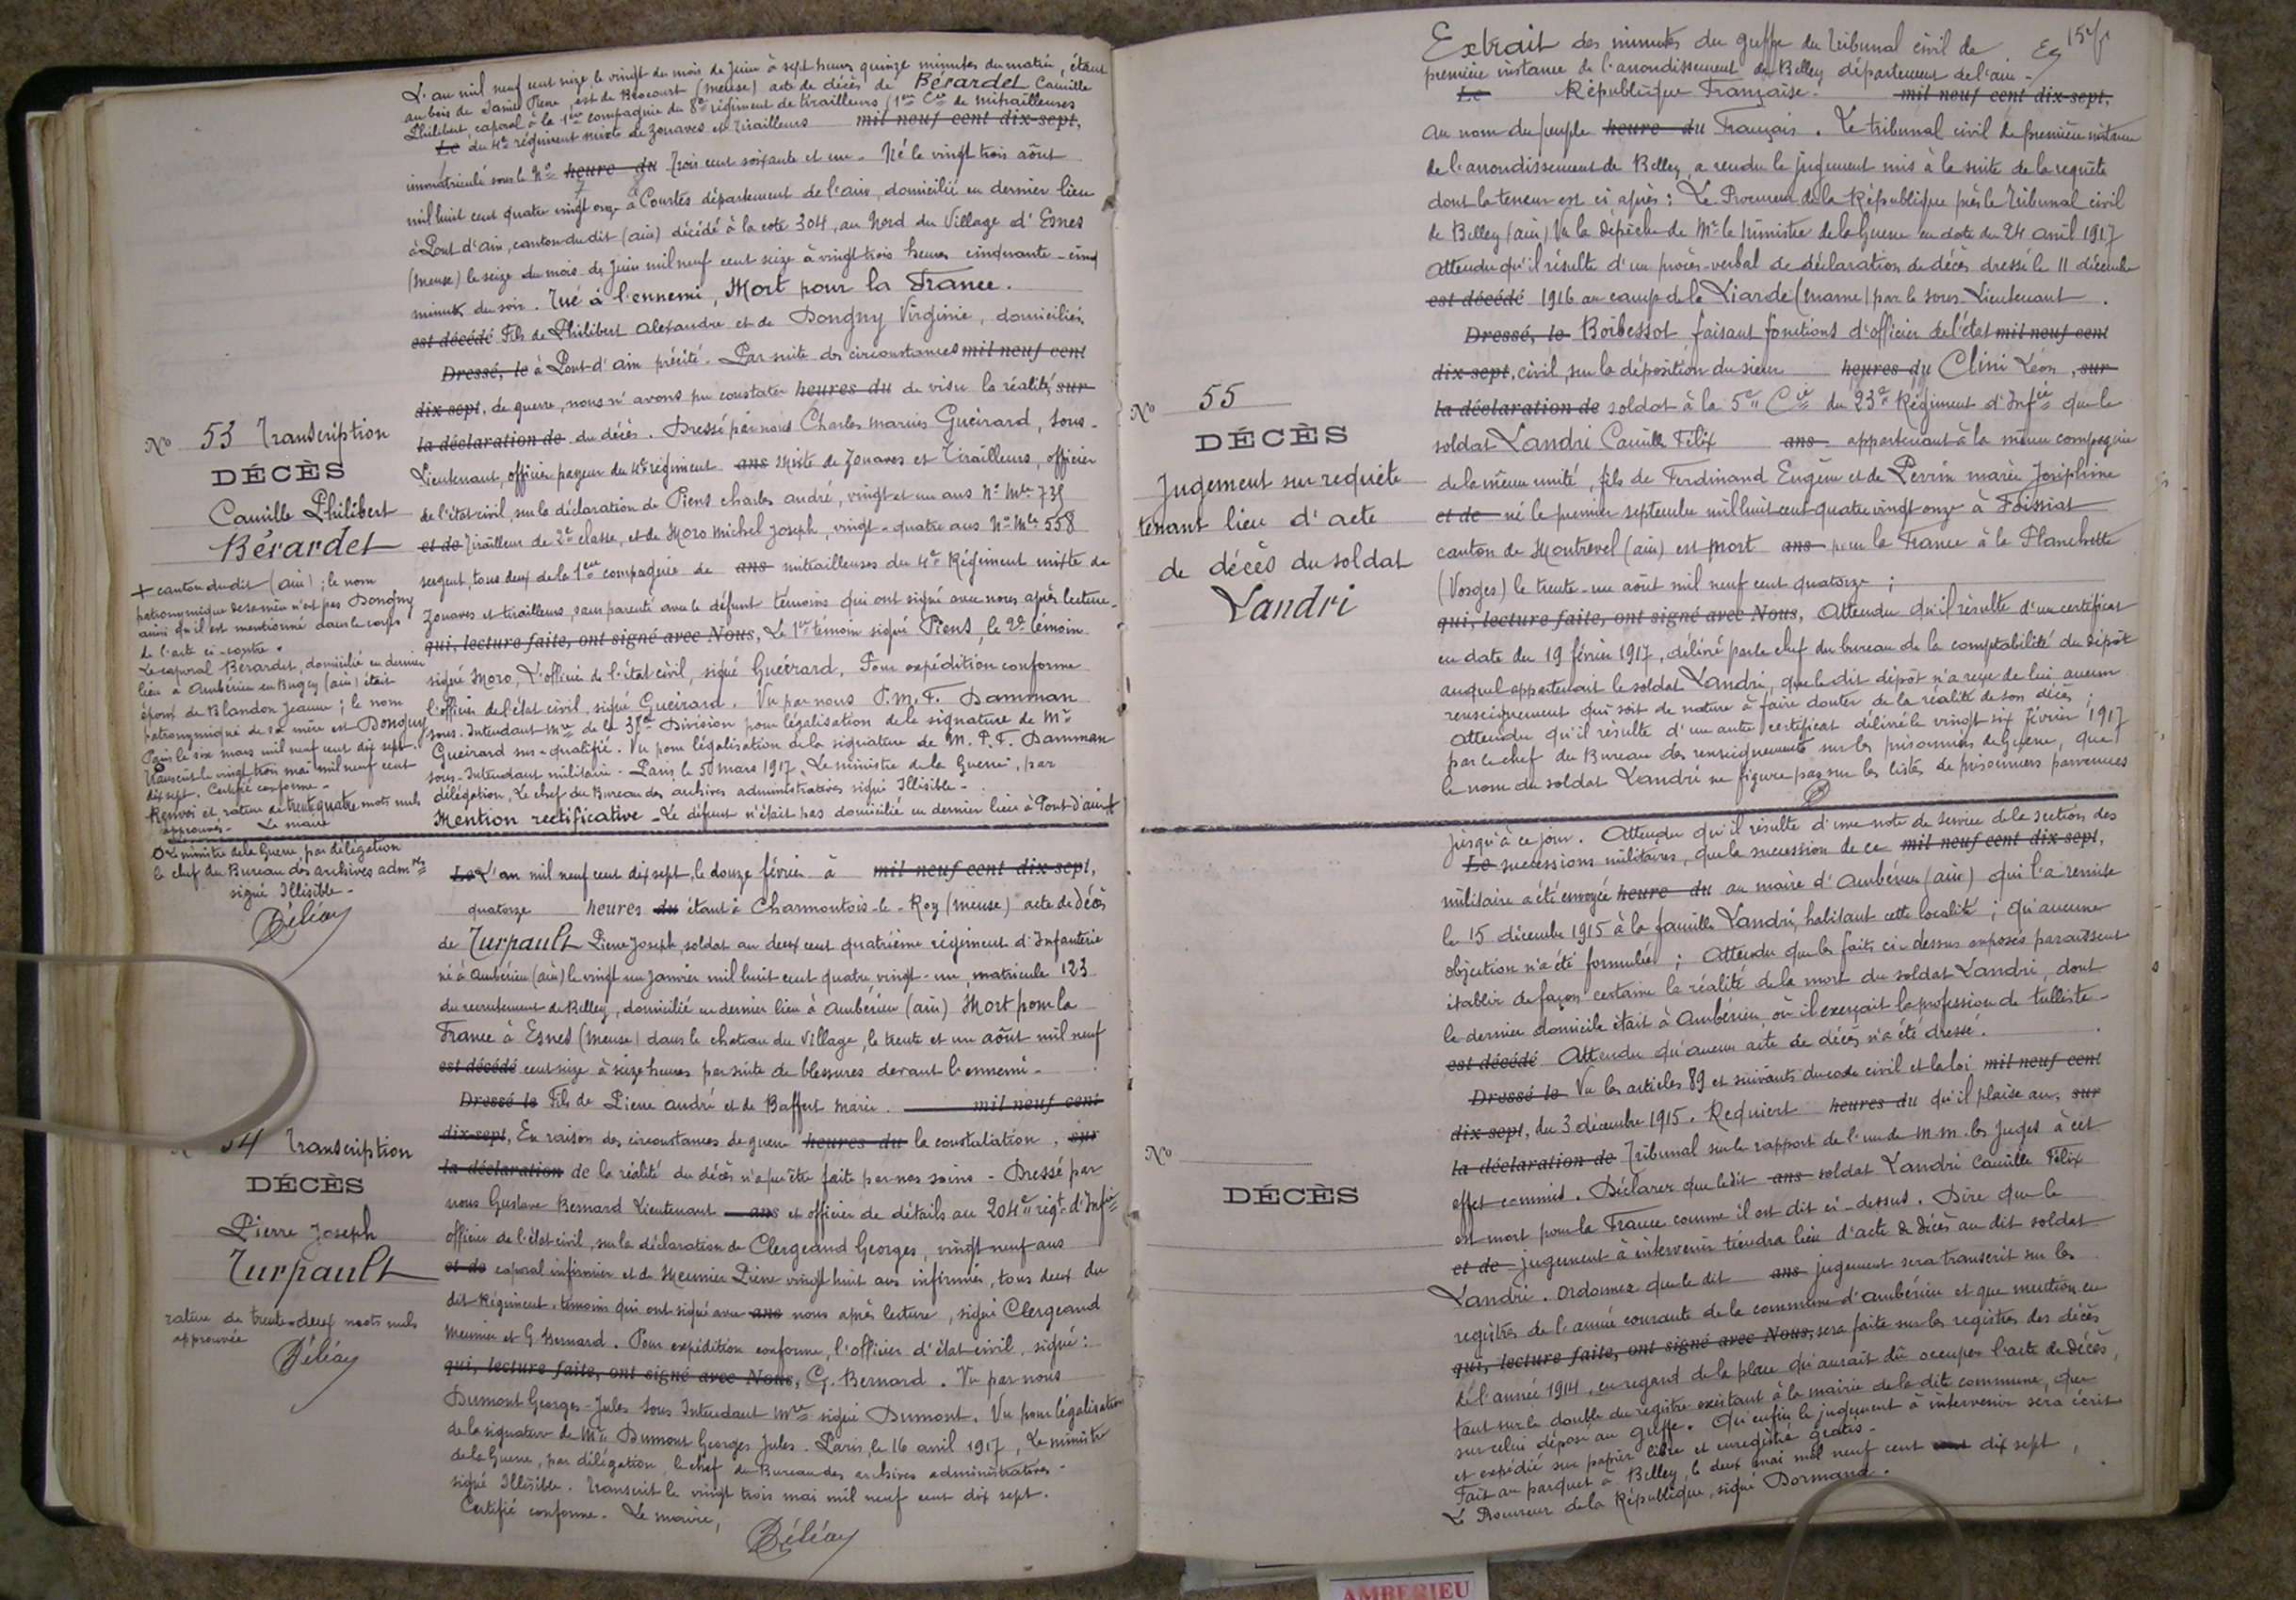 L'an mil neuf cent seize, le vingt du mois de Juin à sept heures quinze minutes du matin, étant
au bois de Daniel Pierre, est de Béocourt (meuse) acte de décès de Bérardet Camille
Philibert, caporal à la 1ère compagnie du 8e régiment de tirailleurs (1ère Cie de mitrailleuses
Le du 4e régiment mixte de zouaves et tirailleurs mil neuf cent dix-sept,
immatriculé sous le No heure du trois cent soixante et un. Né le vingt trois août
mil huit cent quatre vingt onze à Courtes département de l'ain, domicilié en dernier lieu
à Pont d'ain, canton du dit (ain) décédé à la cote 304, au Nord du Village d'Esnes
(meuse) le seize du mois de Juin mil neuf cent seize à vingt trois heures cinquante-cinq
minutes du soir. Tué à l'ennemi, Mort pour la France.
est décédé Fils de Philibert Alexandre et de Dongny Virginie, domiciliés
Dressé, le à Pont-d'ain précité. Par suite des circonstances mil neuf cent
dix sept, de guerre, nous n'avons pu constater heures du de visu la réalité sur
la déclaration de du décès. Dressé par nous Charles marius Gueirard, sous-
Lieutenant, officier payeur du 4e régiment ans mixte de Zouaves et Tirailleurs, officier
de l'état civil, sur la déclaration de Piens charles andré, vingt et un ans No Mle 735
et de Tirailleur de 2e classe, et de Moro Michel Joseph, vingt-quatre ans No Mle 558
sergent, tous deux de la 1ère compagnie de ans mitrailleuses du 4e Régiment mixte de
Zouaves et tirailleurs, sans parenté avec le défunt témoins qui ont signé avec nous après lecture.
qui, lecture faite, ont signé avec Nous, Le 1er témoin signé Piens, le 2e témoin
signé Moro, L'officier de l'état civil, signé Gueirard. Pour expédition conforme
l'officier de l'état civil, signé Gueirard. Vu par nous P. M. F. Damman
sous-Intendant Mre de la 37e Division pour légalisation de la signature de Mr
Gueirard sus-qualifié. Vu pour légalisation de la signature de M. P. F. Damman
sous-Intendant militaire. Paris, le 5 mars 1917, Le ministre de la Guerre, par
délégation, Le chef du Bureau des archives administratives signé Illisible.
Mention rectificative - Le défunt n'était pas domicilié en dernier lieu à Pont d'ain +
No 53 Transcription
DÉCÈS
Camille Philibert
Bérardet
+ canton du dit (ain); le nom
patronymique de sa mère n'est pas Dongny
ainsi qu'il est mentionné dans le corps
de l'acte ci-contre.
Le caporal Bérardet, domicilié en dernier
lieu à Ambérieu en Bugey (ain) était
époux de Blandon Jeanne; le nom
patronymique de sa mère est Donguy
Paris le six mars mil neuf cent dix sept.
Transcrit le vingt trois mai mil neuf cent
dix sept. Certifié conforme.
Renvoi et rature de trente quatre mots nuls
approuvés. Le maire
Le ministre de la Guerre, par délégation
le chef du Bureau des archives admves
signé Illisible.
Le L'an mil neuf cent dix sept, le douze février à mil neuf cent dix sept,
quatorze heures du étant à Charmontois-le-Roy (meuse) acte de décès
de Turpault Pierre Joseph, soldat au deux cent quatrième régiment d'Infanterie
né à Ambérieu (ain) le vingt un Janvier mil huit cent quatre vingt-un, matricule 123
du recrutement de Belley, domicilié en dernier lieu à Ambérieu (ain) Mort pour la
France à Esnes (Meuse) dans le chateau du Village, le trente et un août mil neuf
est décédé cent seize à seize heures par suite de blessures devant l'ennemi.
Dressé le Fils de Pierre andré et de Baffert Marie. mil neuf cent
dix-sept, En raison des circonstances de guerre heures du la constatation, sur
la déclaration de la réalité du décès n'a pu être faite par nos soins - Dressé par
nous Gustave Bernard Lieutenant ans et officier de détails au 204e régt d'Infie
officier de l'état civil, sur la déclaration de Clergeaud Georges, vingt neuf ans
et de caporal infirmier et de Meunier Pierre vingt huit ans infirmier, tous deux du
dit Régiment, témoins qui ont signé avec ans nous après lecture, signé Clergeaud
Meunier et G. Bernard. Pour expédition conforme, l'officier d'état civil, signé:
qui, lecture faite, ont signé avec Nous, G. Bernard. Vu par nous
Dumont Georges-Jules sous Intendant Mre signé Dumont. Vu pour légalisation
de la signature de Mr Dumont Georges Jules. Paris, le 16 avril 1917, Le ministre
de la Guerre, par délégation, le chef du Bureau des archives administratives.
signé Illisible. Transcrit le vingt trois mai mil neuf cent dix sept.
Certifié conforme. Le maire,
54 Transcription
DÉCÈS
Pierre Joseph
Turpault
rature de trente-deux mots nuls
approuvée
Extrait des minutes du greffe du tribunal civil de
première instance de l'arrondissement de Belley département de l'ain.
Le République Française. mil neuf cent dix-sept,
au nom du peuple heure du Français. Le tribunal civil de première instance
de l'arrondissement de Belley, a rendu le jugement mis à la suite de la requête
dont la teneur est ci après: Le Procureur de la République près le Tribunal civil
de Belley (ain) Vu la dépêche de Mr le Ministre de la Guerre en date du 24 avril 1917
Attendu qu'il résulte d'un procès-verbal de déclaration de décès dressé le 11 décembre
est décédé 1916 au camp de la Liarde (marne) par le sous-Lieutenant
Dressé, le Boibessot faisant fonctions d'officier de l'état mil neuf cent
dix sept, civil, sur la déposition du sieur heures du Clini Léon, sur
la déclaration de soldat à la 5e Cie du 23e Régiment d'Infie que le
soldat Landri Camille Félix ans appartenant à la même compagnie
de la même unité, fils de Ferdinand Eugène et de Perrin marie Joséphine
et de né le premier septembre mil huit cent quatre vingt onze à Foissiat
canton de Montrevel (ain) est mort ans pour la France à la Planchette
(Vosges) le trente-un août mil neuf cent quatorze;
qui, lecture faite, ont signé avec Nous, Attendu qu'il résulte d'un certificat
en date du 19 février 1917, délivré par le chef du bureau de la comptabilité du dépôt
auquel appartenait le soldat Landri, que le dit dépôt n'a reçu de lui aucun
renseignement qui soit de nature à faire douter de la réalité de son décès;
Attendu qu'il résulte d'un autre certificat délivré le vingt six février 1917
par le chef du Bureau des renseignements sur les prisonniers de Guerre, que
le nom du soldat Landri ne figure pas sur les listes de prisonniers parvenues
No 55
DÉCÈS
Jugement sur requête
tenant lieu d'acte
de décès du soldat
Landri
jusqu'à ce jour. Attendu qu'il résulte d'une note de service de la section des
Le successions militaires, que la succession de ce mil neuf cent dix sept,
militaire a été envoyée heure du au maire d'Ambérieu (ain) qui l'a remise
le 15 décembre 1915 à la famille Landri, habitant cette localité; qu'aucune
objection n'a été formulée; Attendu que les faits ci-dessus exposés paraissent
établir de façon certaine la réalité de la mort du soldat Landri, dont
le dernier domicile était à Ambérieu, où il exerçait la profession de tulliste.
est décédé Attendu qu'aucun acte de décès n'a été dressé.
Dressé le Vu les articles 89 et suivants du code civil et la loi mil neuf cent
dix sept, du 3 décembre 1915. Requiert heures du qu'il plaise au, sur
la déclaration de Tribunal sur le rapport de l'un de M.M. les Juges à cet
effet commis. Déclarer que ledit ans soldat Landri Camille Félix
est mort pour la France comme il est dit ci-dessus. Dire que le
et de jugement à intervenir tiendra lieu d'acte de décès au dit soldat
Landri. Ordonner que le dit ans jugement sera transcrit sur les
registres de l'année courante de la commune d'Ambérieu et que mention en
qui, lecture faite, ont signé avec Nous, sera faite sur les registres des décès
de l'année 1914, en regard de la place qu'aurait dû occuper l'acte de décès,
tant sur le double du registre existant à la mairie de la dite commune, que
sur celui déposé au greffe. Qu'enfin le jugement à intervenir sera écrit
et expédié sur papier libre et enregistré gratis.
Fait au parquet à Belley, le deux mai mil neuf cent dix sept,
Le Procureur de la République, signé Dormand.
No
DÉCÈS
AMBERIEU